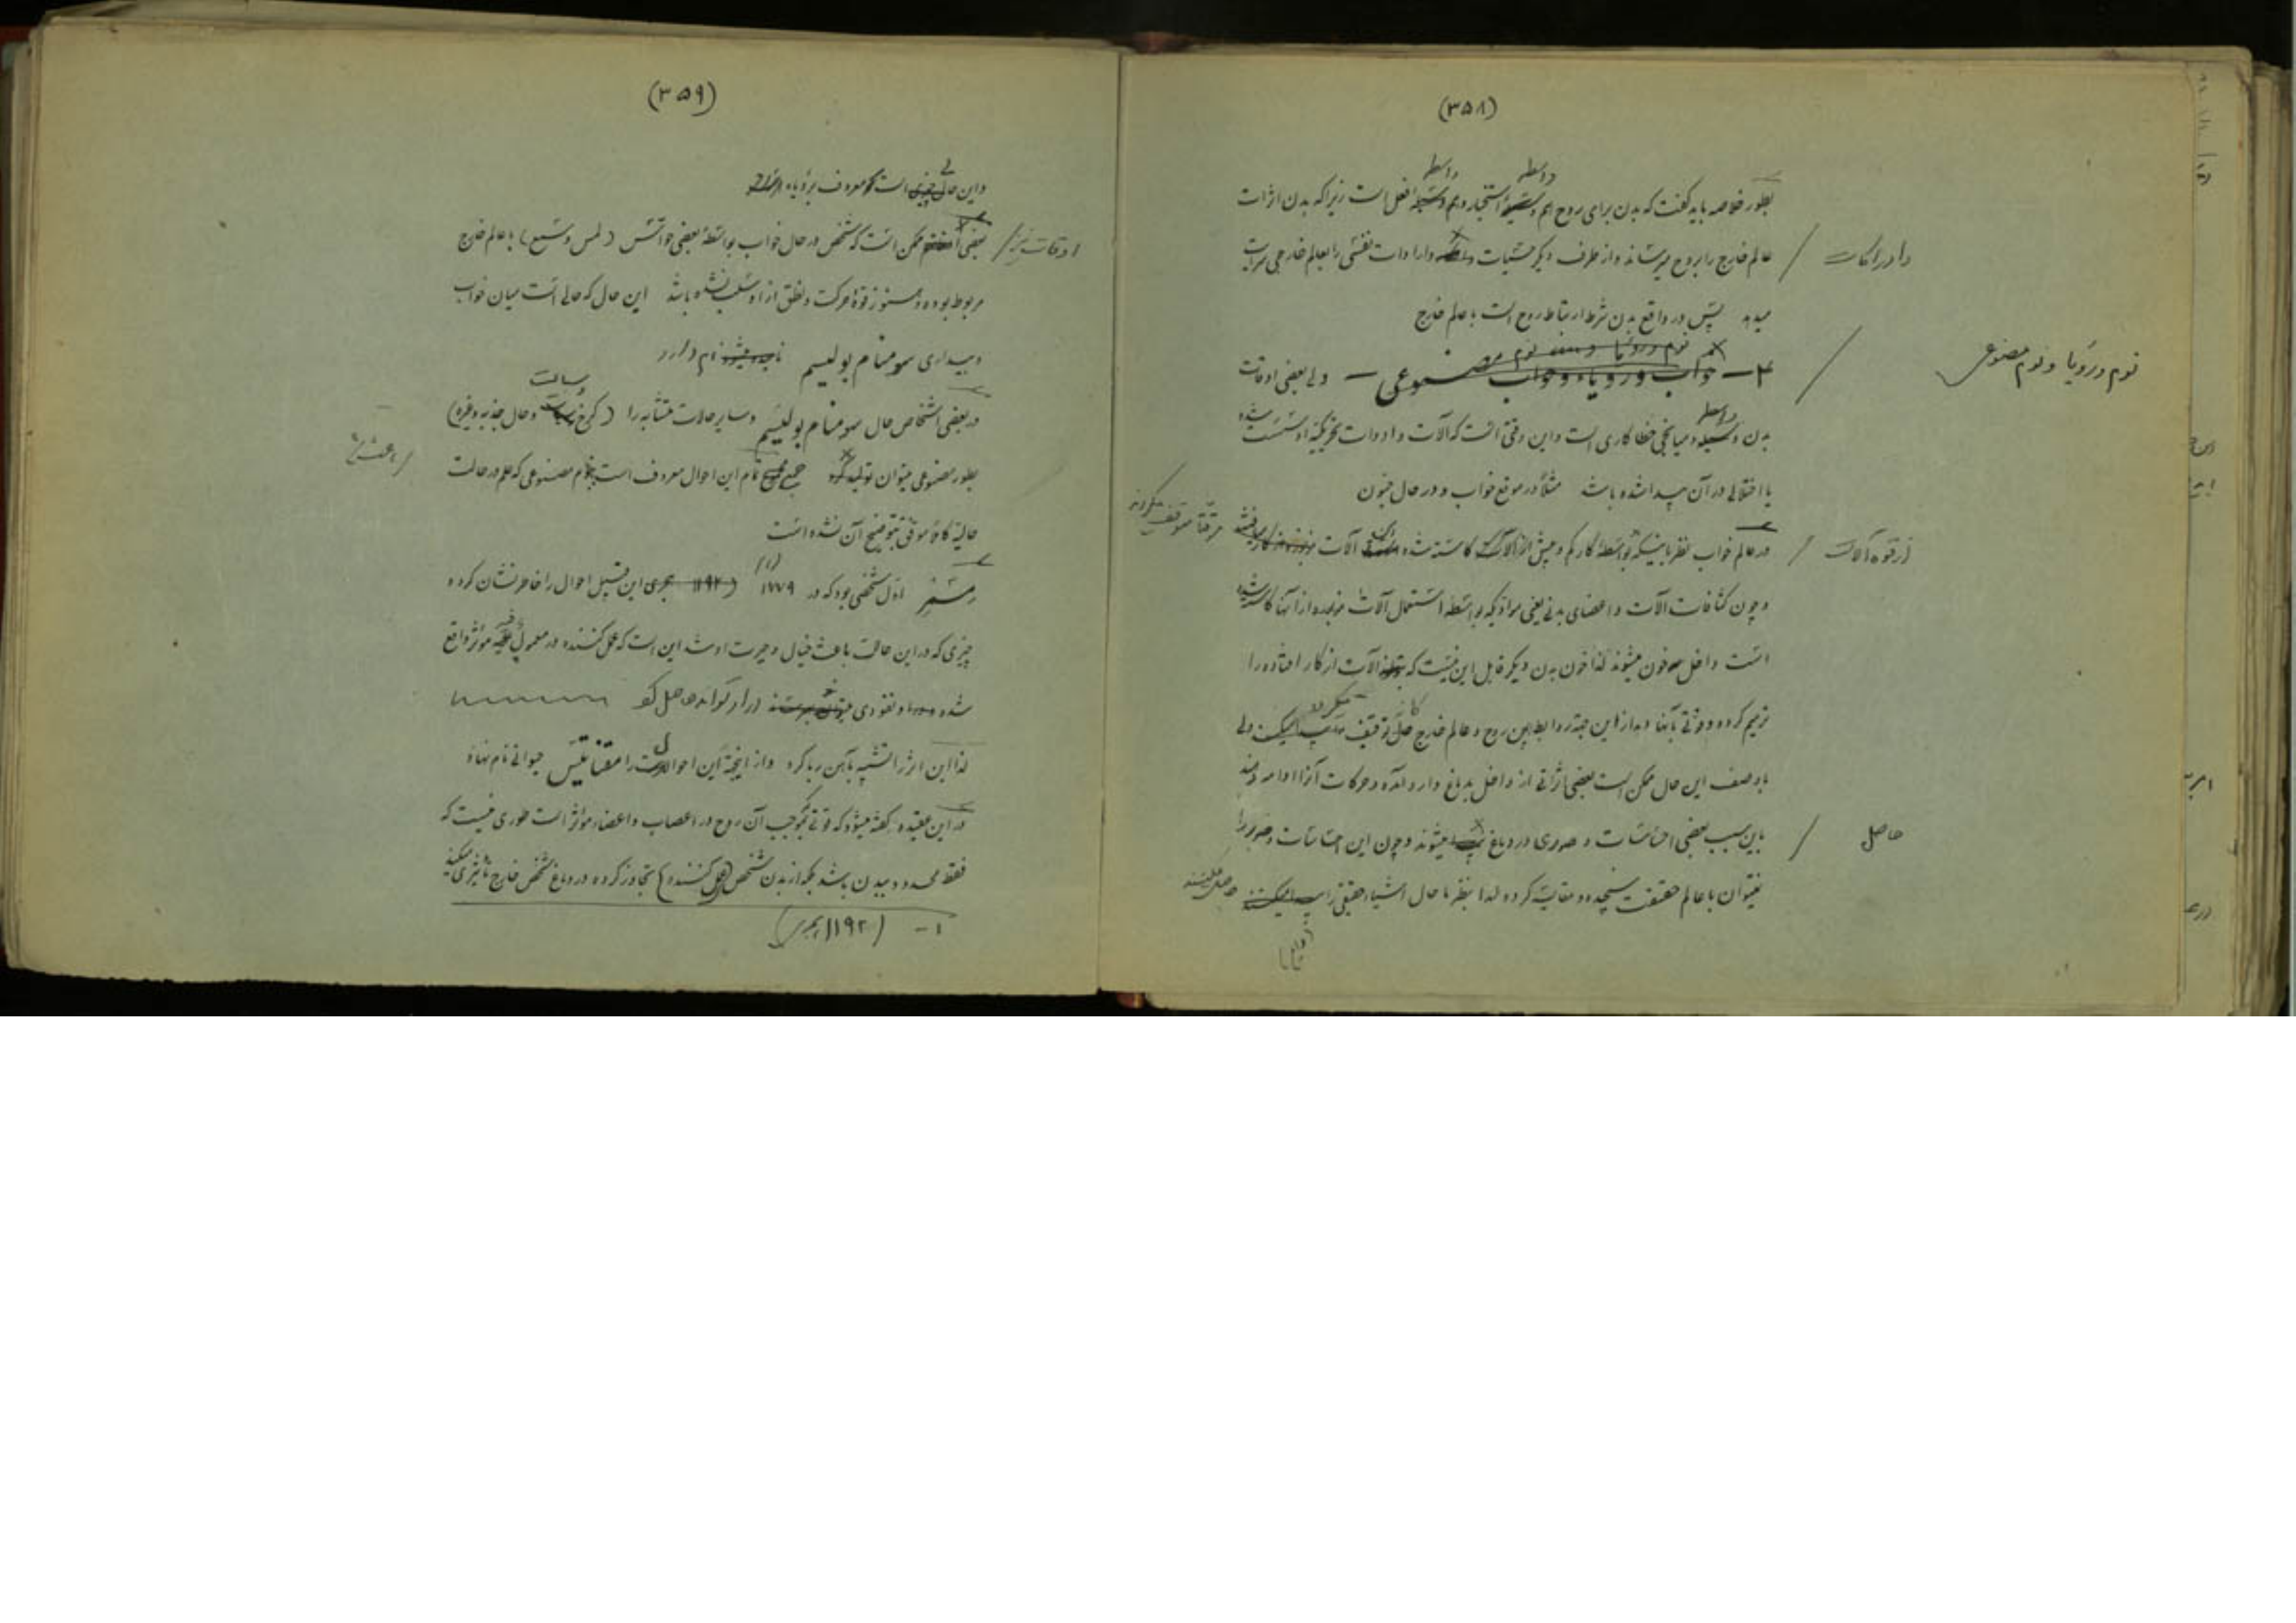 (۳۵۸)
بطور خلاصه باید گفت که بدن برای روح هم واسطه استخبار و هم واسطه فعل است زیرا که بدن اثرات
عالم خارج را بروح میرساند و از طرف دیگر حسیات و ادراکات و ارادات نفسی را بعالم خارجی سرایت
میدهد پس در واقع بدن شرط ارتباط روح است با عالم خارج
نوم و رؤیا و نوم مصنوعی
۴ — خواب و رویاء و خواب مصنوعی — ولی بعضی اوقات
بدن واسطه و میانجی خطا کاری است و این وقتی است که آلات و ادوات تحریکیه او سست شده
یا اختلالی در آن پیدا شده باشد مثلاً در موقع خواب و در حال جنون
در عالم خواب نظر باینکه بواسطه کار کم و بیش از قوه آلات کاسته شده این آلات موقتاً متوقف میگردند
و چون کثافات آلات و اعضای بدنی یعنی موادیکه بواسطه استعمال آلات مزبوره از آنها کاسته شده
است داخل خون میشوند لذا خون بدن دیگر قابل این نیست که آلات از کار افتاده را
ترمیم کرده و قوتی بآنها دهد از این جهة روابط بین روح و عالم خارج حال توقیف پیدا میکند ولی
با وصف این حال ممکن است بعضی اثراتی از داخل بدماغ وارد آمده و حرکات آنرا ادامه دهند
باین سبب بعضی احساسات و صوری در دماغ حاصل میشوند و چون این احساسات و صور را
نمیتوان با عالم حقیقت سنجیده و مقایسه کرده لذا بنظر ما حال اشیاء حقیقی را حاصل میکنند
(۳۵۹)
و این حالی است که معروف برؤیاء است
بعضی اوقات نیز ممکن است که شخص در حال خواب بواسطه بعضی حواسش (لمس و سمع) با عالم خارج
مربوط بوده و هنوز قوهٔ حرکت و نطق از او سلب نشده باشد این حال که حالی است میان خواب
و بیداری سومنامبولیسم نام دارد
در بعضی اشخاص حال سومنامبولیسم و سایر حالات متشابه را (کرخ و سبات و حال جذبه و غیره)
بطور مصنوعی میتوان تولید کرد تمام این احوال معروف است بنوم مصنوعی که علم در حالت
حالیه کاملاً موفق بتوضیح آن نشده است
مسمر اول شخصی بود که در ۱۷۷۹ (۱) (۱۱۹۲ هجری) این قبیل احوال را خاطر نشان کرده
چیزی که در این حالت باعث خیال و حیرت او شد این است که عمل کننده در معمول فیه مؤثر واقع
شده و نفوذی در او تواند حاصل کند
لذا این اثر را تشبیه بآهن ربا کرد و از اینجهة این احوال را مقناتیس حیوانی نام نهاد
در این عقیده گفته میشود که قوتی که بموجب آن روح در اعصاب و اعضاء مؤثر است طوری نیست که
فقط محدود ببدن باشد بلکه از بدن شخص (عمل کننده) تجاوز کرده در دماغ شخص خارج تأثیری میکند
۱ — (۱۱۹۲ هجری)